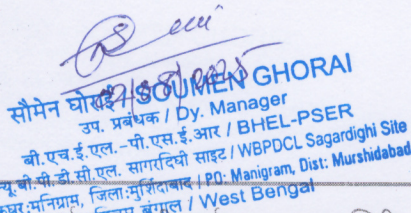 सौमेन घोरई / SOUMEN GHORAI
उप. प्रबंधक / Dy. Manager
बी.एच.ई.एल.-पी.एस.ई.आर / BHEL-PSER
यू.बी.पी.डी.सी.एल. सागरदिघी साइट / WBPDCL Sagardighi Site
मनिग्राम, जिला:मुर्शिदाबाद / PO: Manigram, Dist: Murshidabad
बंगाल / West Bengal